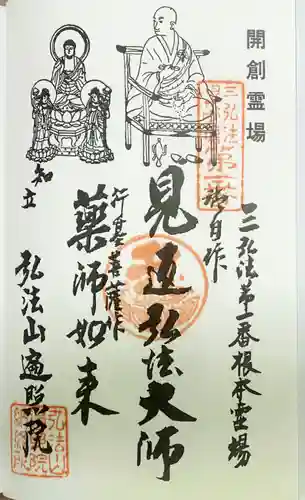 開創霊場
三弘法
第一番
三弘法第一番根本霊場
御自作
見返弘法大師
行基菩薩作
薬師如来
知立
弘法山遍照院